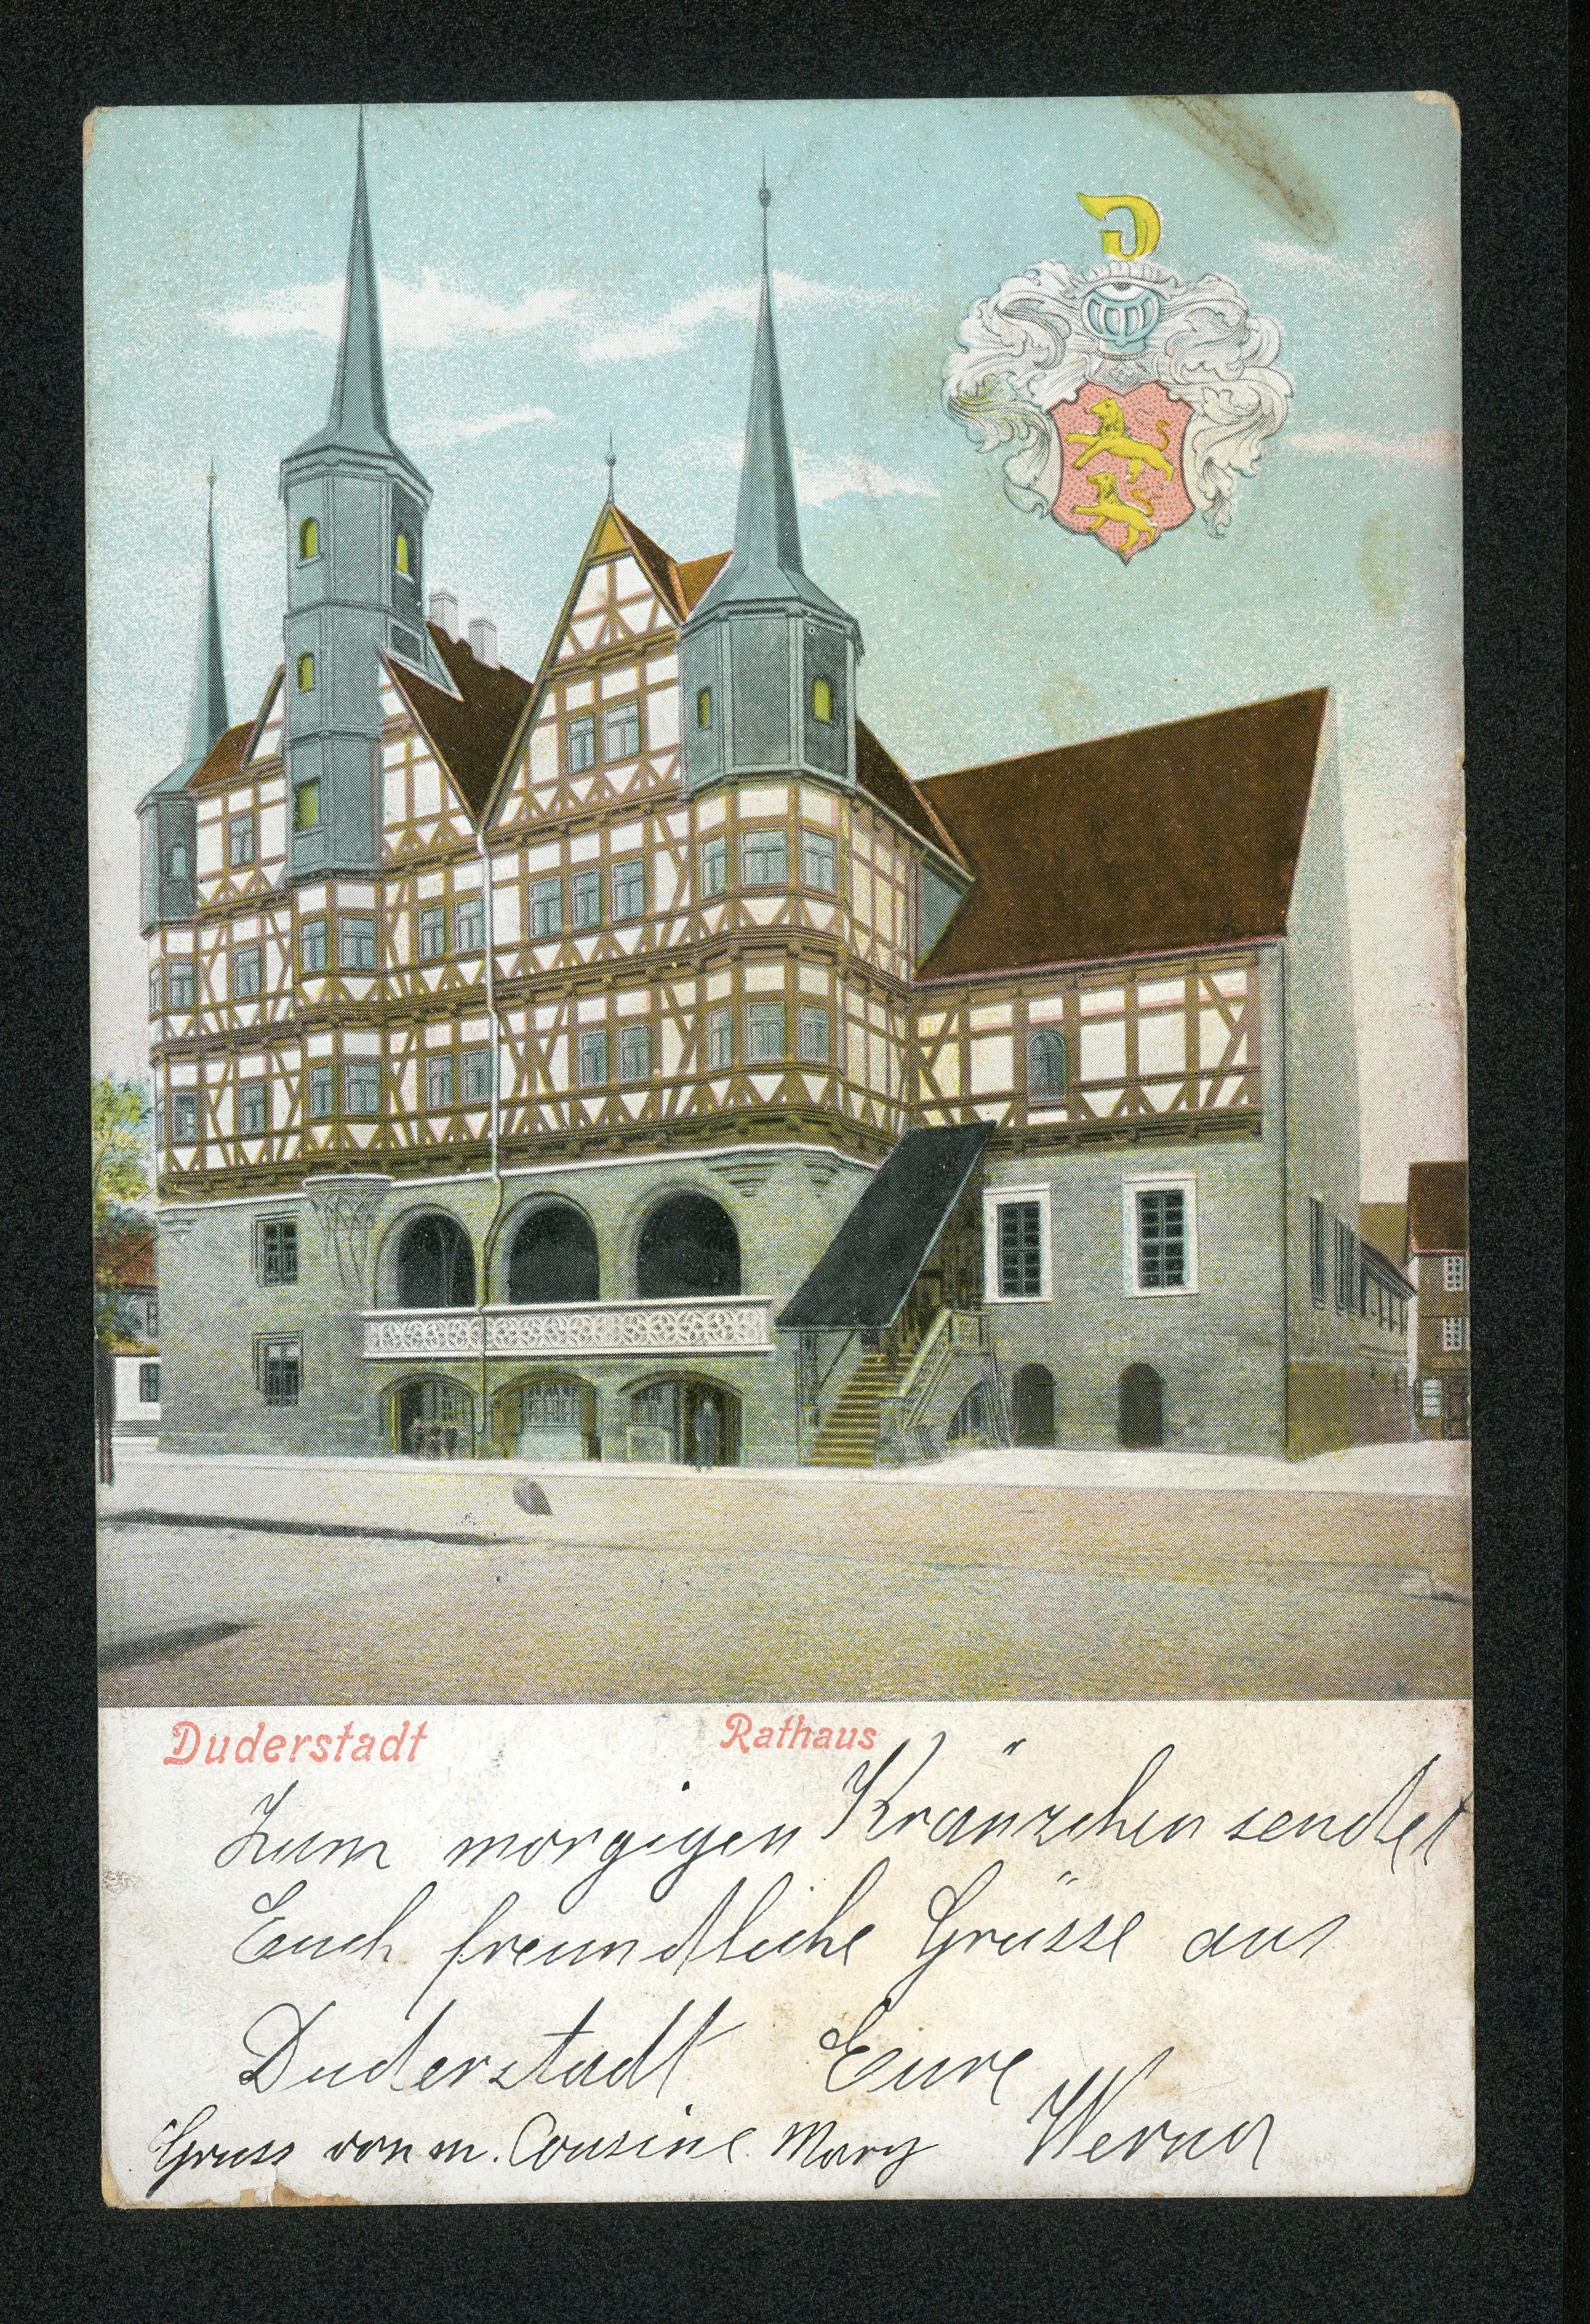 Duderstadt Rathaus
Zum morgigen Kränzchen sendet
Euch freundliche Grüsse aus
Duderstadt Eure
Werner
Gruss von m. Cousine Mary